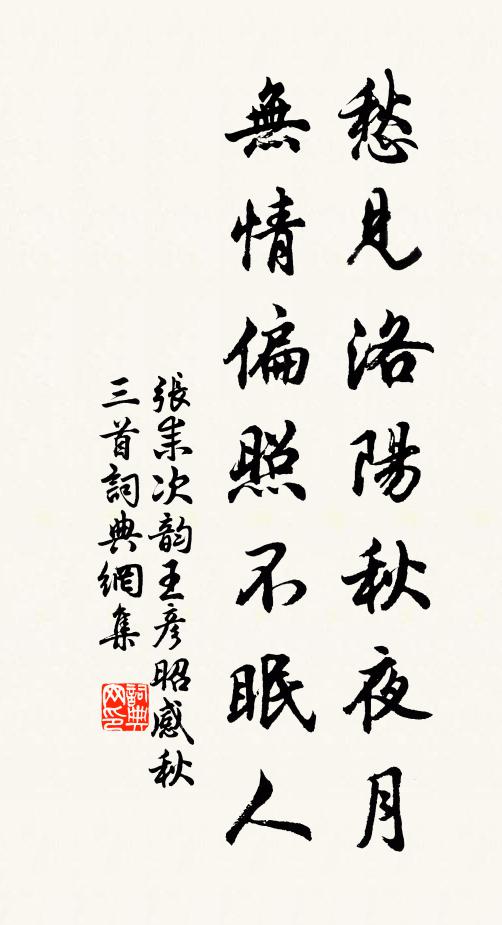 愁見洛陽秋夜月
無情偏照不眠人
張耒次韵王彦昭感秋
三首詞典網集
詞典
网印